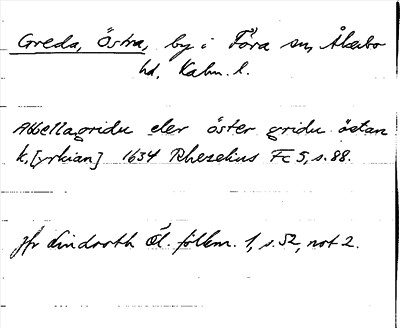 Greda, Östra, by i Föra sn, Åkerbo
hd, Kalm. l.
Abbellagridu eler öster gridu östan
k.[yrkian] 1634 Rhezelius Fc 5, s. 88.
Jfr Lindroth Öl. folkm. 1, s. 52, not 2.